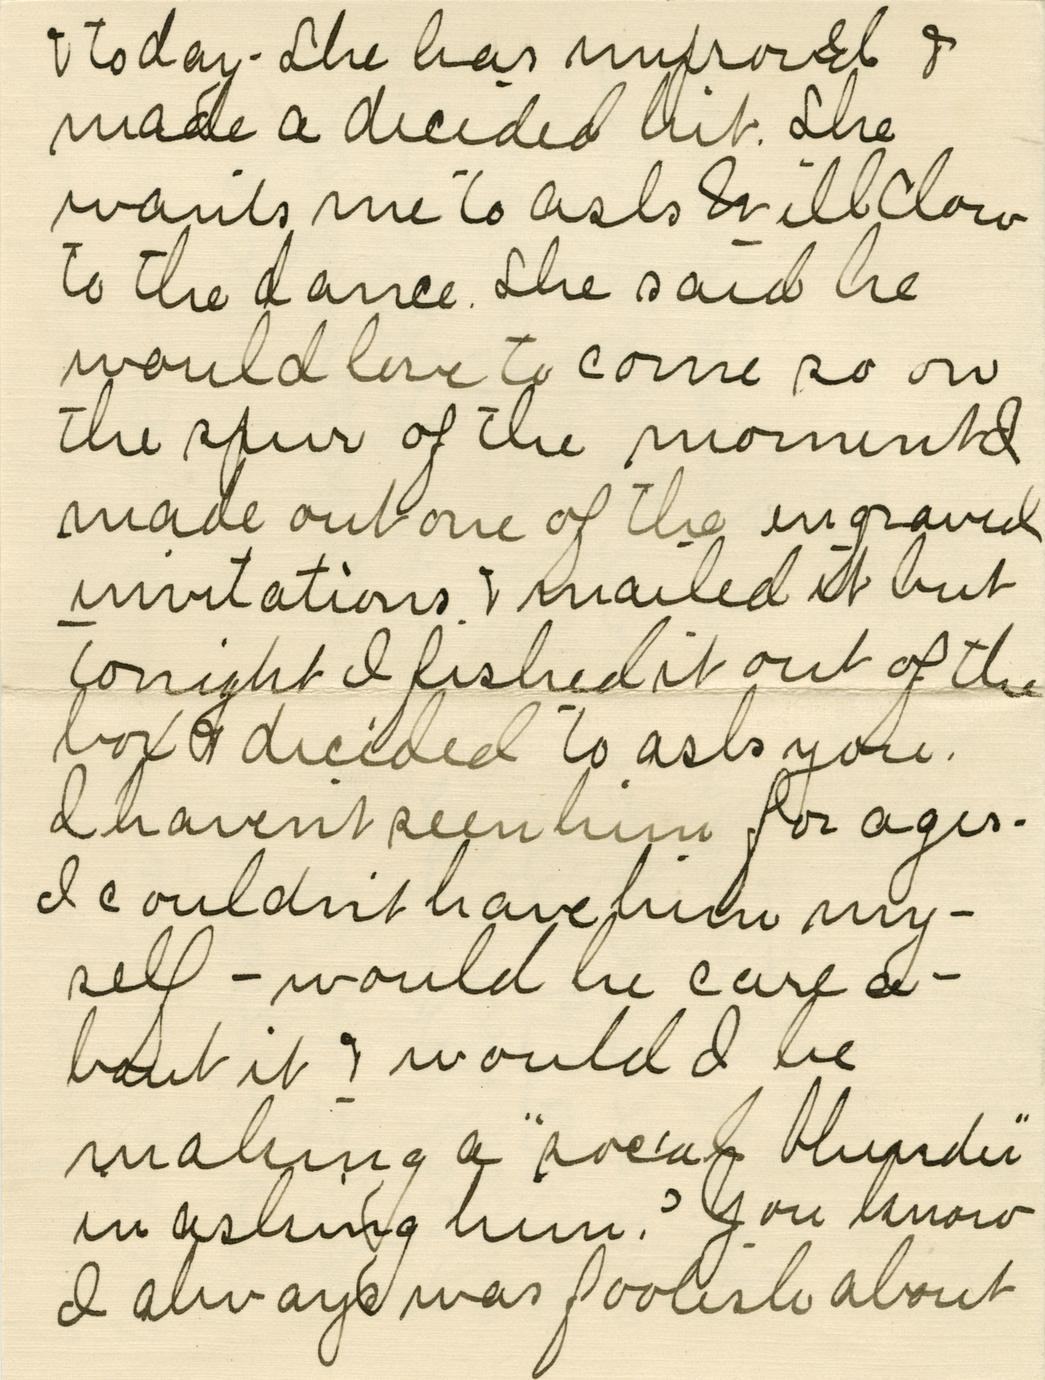 & today - She has improved &
made a decided hit. She
wants me to ask Will Clow
to the dance. She said he
would love to come so on
the spur of the moment I
made out one of the engraved
invitations & mailed it but
tonight I fished it out of the
box & decided to ask you.
I haven't seen him for ages -
I couldn't have him my-
self - would he care a-
bout it & would I be
making a "social blunder"
in asking him? You know
I always was foolish about